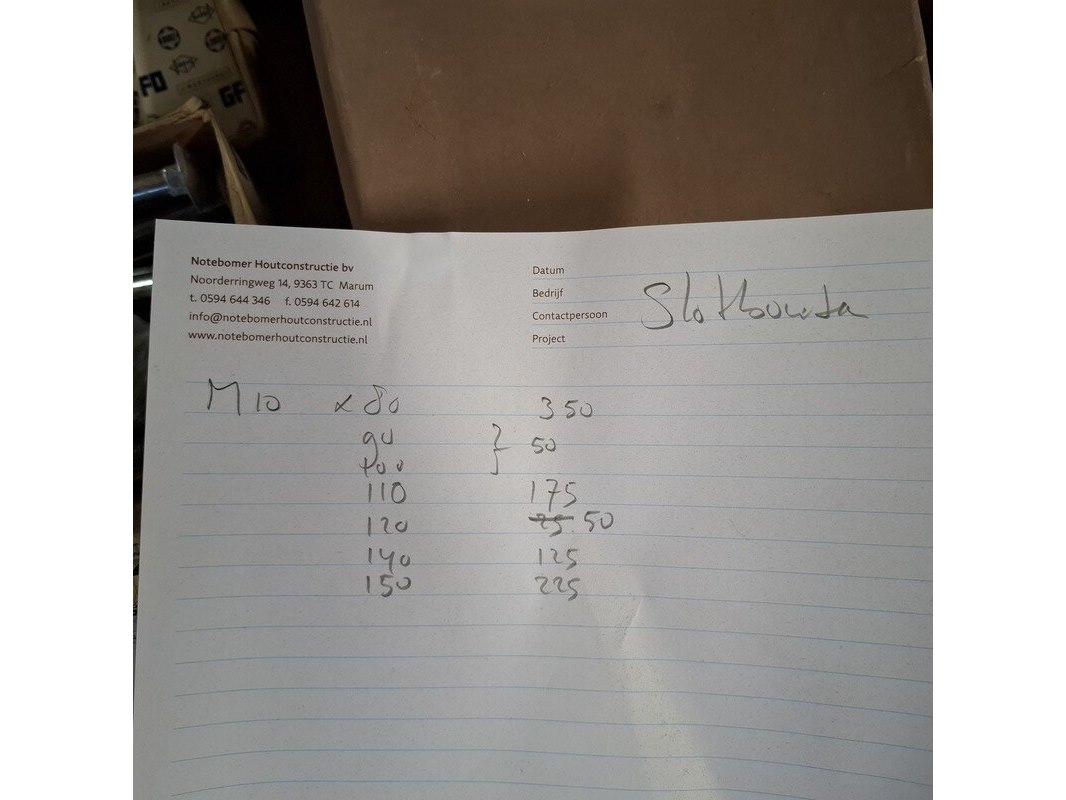 FO
GF
Notebomer Houtconstructie bv
Noorderringweg 14, 9363 TC Marum
t. 0594 644 346 f. 0594 642 614
info@notebomerhoutconstructie.nl
www.notebomerhoutconstructie.nl
Datum
Bedrijf
Contactpersoon
Project
Slotbouten
M10 x 80 350
90 } 50
100
110 175
120 25 50
140 125
150 225